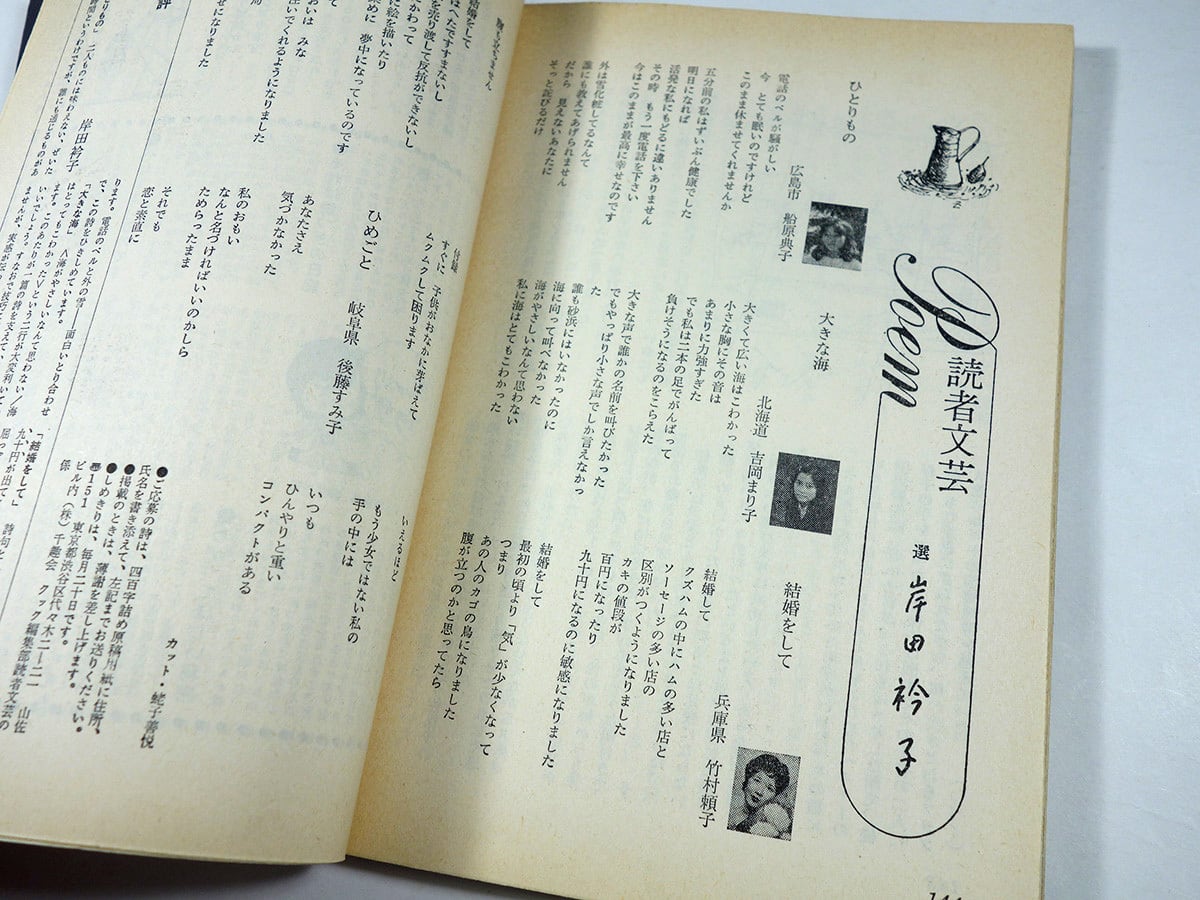 Poem
読者文芸
選 岸田衿子
ひとりもの
広島市 船原典子
電話のベルが騒がしい
今 とても眠いのですけれど
このまま休ませてくれませんか
五分前の私はずいぶん健康でした
明日になれば
活発な私にもどるに違いありません
その時 もう一度電話を下さい
今はこのままが最高に幸せなのです
外は雪化粧してるなんて
誰にも教えてあげられません
だから 見えないあなたに
そっと詫びるだけ
大きな海
北海道 吉岡まり子
大きくて広い海はこわかった
小さな胸にその音は
あまりに力強すぎた
でも私は二本の足でがんばって
負けそうになるのをこらえた
大きな声で誰かの名前を叫びたかった
でもやっぱり小さな声でしか言えなかっ
た
誰も砂浜にはいなかったのに
海に向って叫べなかった
海がやさしいなんて思わない
私に海はとてもこわかった
結婚をして
兵庫県 竹村頼子
結婚して
クズハムの中にハムの多い店と
ソーセージの多い店の
区別がつくようになりました
カキの値段が
百円になったり
九十円になるのに敏感になりました
結婚をして
最初の頃より「気」が少なくなって
つまり
あの人のカゴの鳥になりました
腹が立つのかと思ってたら
結婚をして
はへたですすまないし
を売り渡して反抗ができないし
かわって
に絵を描いたり
めに 夢中になっているのです
おいは みな
注いでくれるようになりました
せになりました
付録
すぐに 子供がおなかに芽ばえて
ムクムクして困ります
ひめごと
岐阜県 後藤すみ子
あなたさえ
気づかなかった
私のおもい
なんと名づければいいのかしら
ためらったまま
それでも
恋と素直に
いえるほど
もう少女ではない私の
手の中には
いつも
ひんやりと重い
コンパクトがある
カット・蛯子善悦
評
岸田衿子
とりもの」 二人ものには味わえない、ぜいた
時間というわけですが、誰にも通じるものがあ
ります。電話のベルと外の雪――面白いとり合わせ
で、この詩をひきしめています。
「大きな海」 〈海がやさしいなんて思わない/海
はとってもこわかった〉という二行が大変利いて
いいでしょう。このあたりが一篇の詩を支えて、
「結婚をして」
九十円が出て
●ご応募の詩は、四百字詰め原稿用紙に住所、
氏名を書き添えて、左記までお送りください。
●掲載のときは、薄謝を差し上げます。
●しめきりは、毎月二十日です。
〠151 東京都渋谷区代々木二―二一 山佐
ビル内 (株)千趣会 クック編集部読者文芸の
係